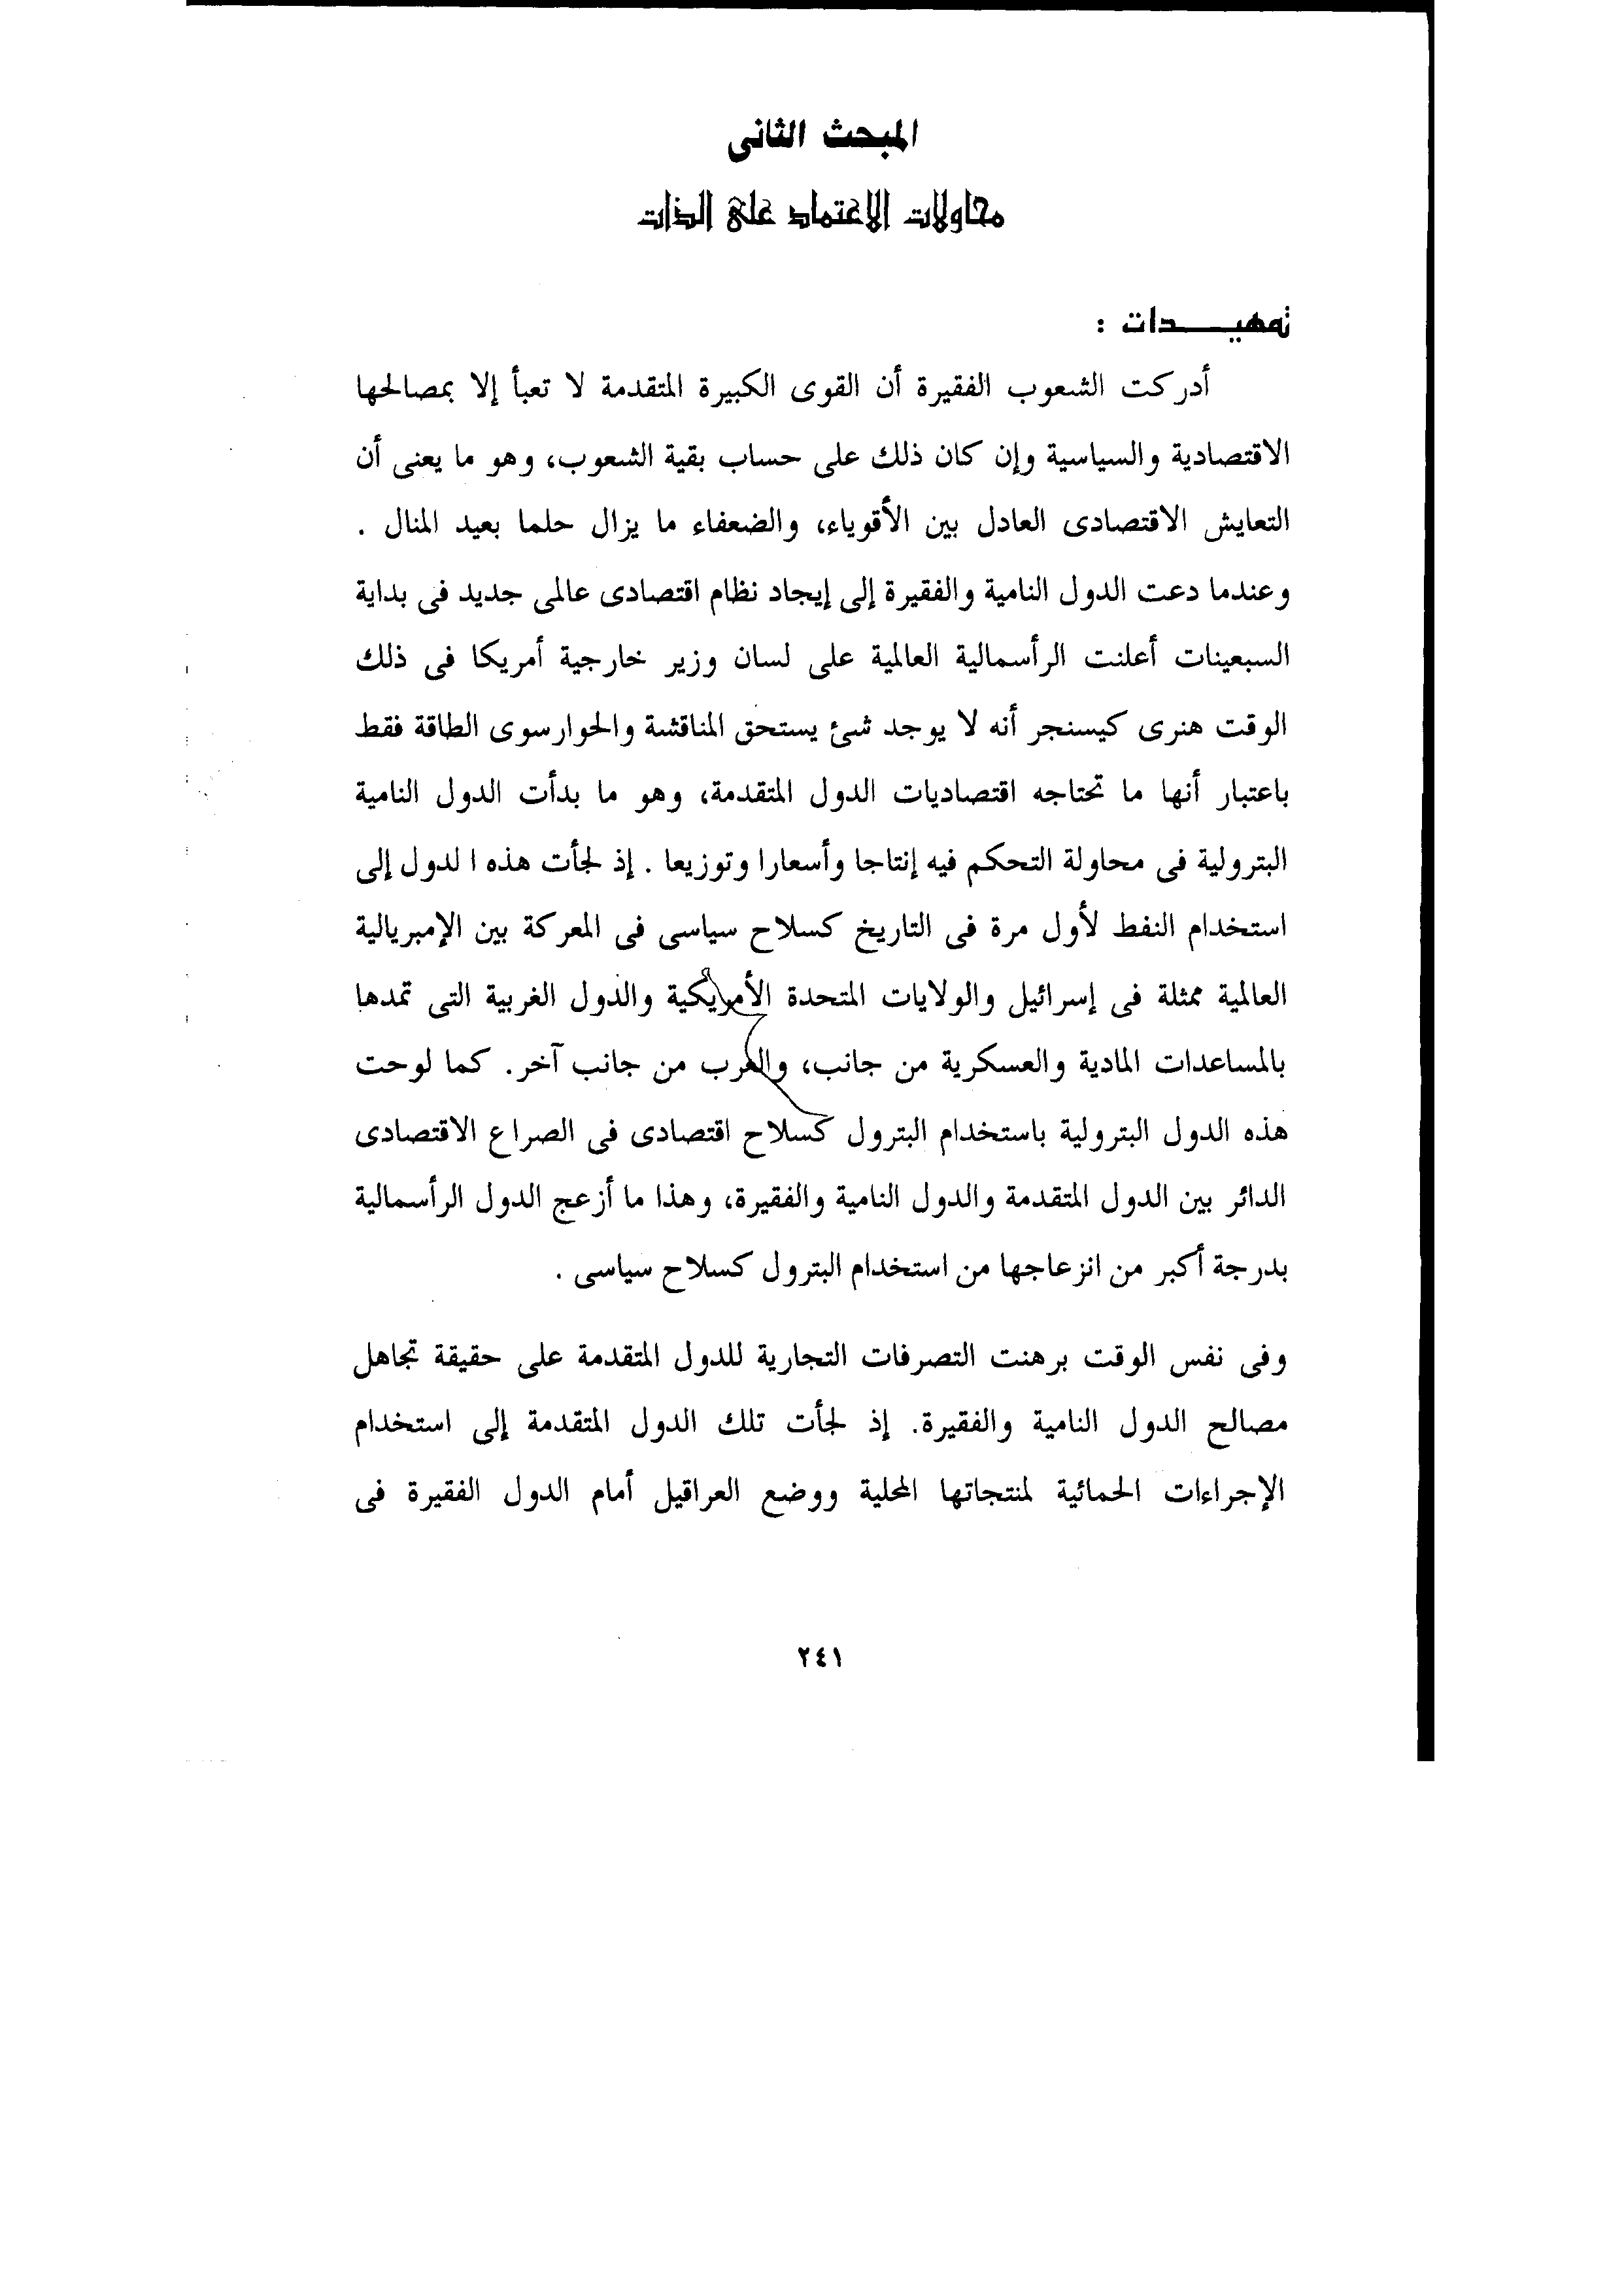 المبحث الثانى
محاولات الاعتماد على الذات
تمهيـــــدات :
أدركت الشعوب الفقيرة أن القوى الكبيرة المتقدمة لا تعبأ إلا بمصالحها
الاقتصادية والسياسية وإن كان ذلك على حساب بقية الشعوب، وهو ما يعنى أن
التعايش الاقتصادى العادل بين الأقوياء، والضعفاء ما يزال حلما بعيد المنال .
وعندما دعت الدول النامية والفقيرة إلى إيجاد نظام اقتصادى عالمى جديد فى بداية
السبعينات أعلنت الرأسمالية العالمية على لسان وزير خارجية أمريكا فى ذلك
الوقت هنرى كيسنجر أنه لا يوجد شئ يستحق المناقشة والحوارسوى الطاقة فقط
باعتبار أنها ما تحتاجه اقتصاديات الدول المتقدمة، وهو ما بدأت الدول النامية
البترولية فى محاولة التحكم فيه إنتاجا وأسعارا وتوزيعا . إذ لجأت هذه ا لدول إلى
استخدام النفط لأول مرة فى التاريخ كسلاح سياسى فى المعركة بين الإمبريالية
العالمية ممثلة فى إسرائيل والولايات المتحدة الأمريكية والدول الغربية التى تمدها
بالمساعدات المادية والعسكرية من جانب، والعرب من جانب آخر. كما لوحت
هذه الدول البترولية باستخدام البترول كسلاح اقتصادى فى الصراع الاقتصادى
الدائر بين الدول المتقدمة والدول النامية والفقيرة، وهذا ما أزعج الدول الرأسمالية
بدرجة أكبر من انزعاجها من استخدام البترول كسلاح سياسى .
وفى نفس الوقت برهنت التصرفات التجارية للدول المتقدمة على حقيقة تجاهل
مصالح الدول النامية والفقيرة. إذ لجأت تلك الدول المتقدمة إلى استخدام
الإجراءات الحمائية لمنتجاتها المحلية ووضع العراقيل أمام الدول الفقيرة فى
٢٤١